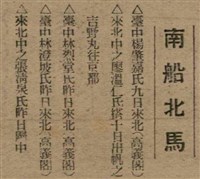 南船北馬
△臺中楊肇嘉氏九日來北(高義閣)
△來北中之應溫仁氏搭十日出帆之
吉野丸往京都
△臺中林烈堂氏昨日來北(高義閣)
△臺中林澄坡氏昨日來北(高義閣)
△來北中之張清吳氏昨日歸中